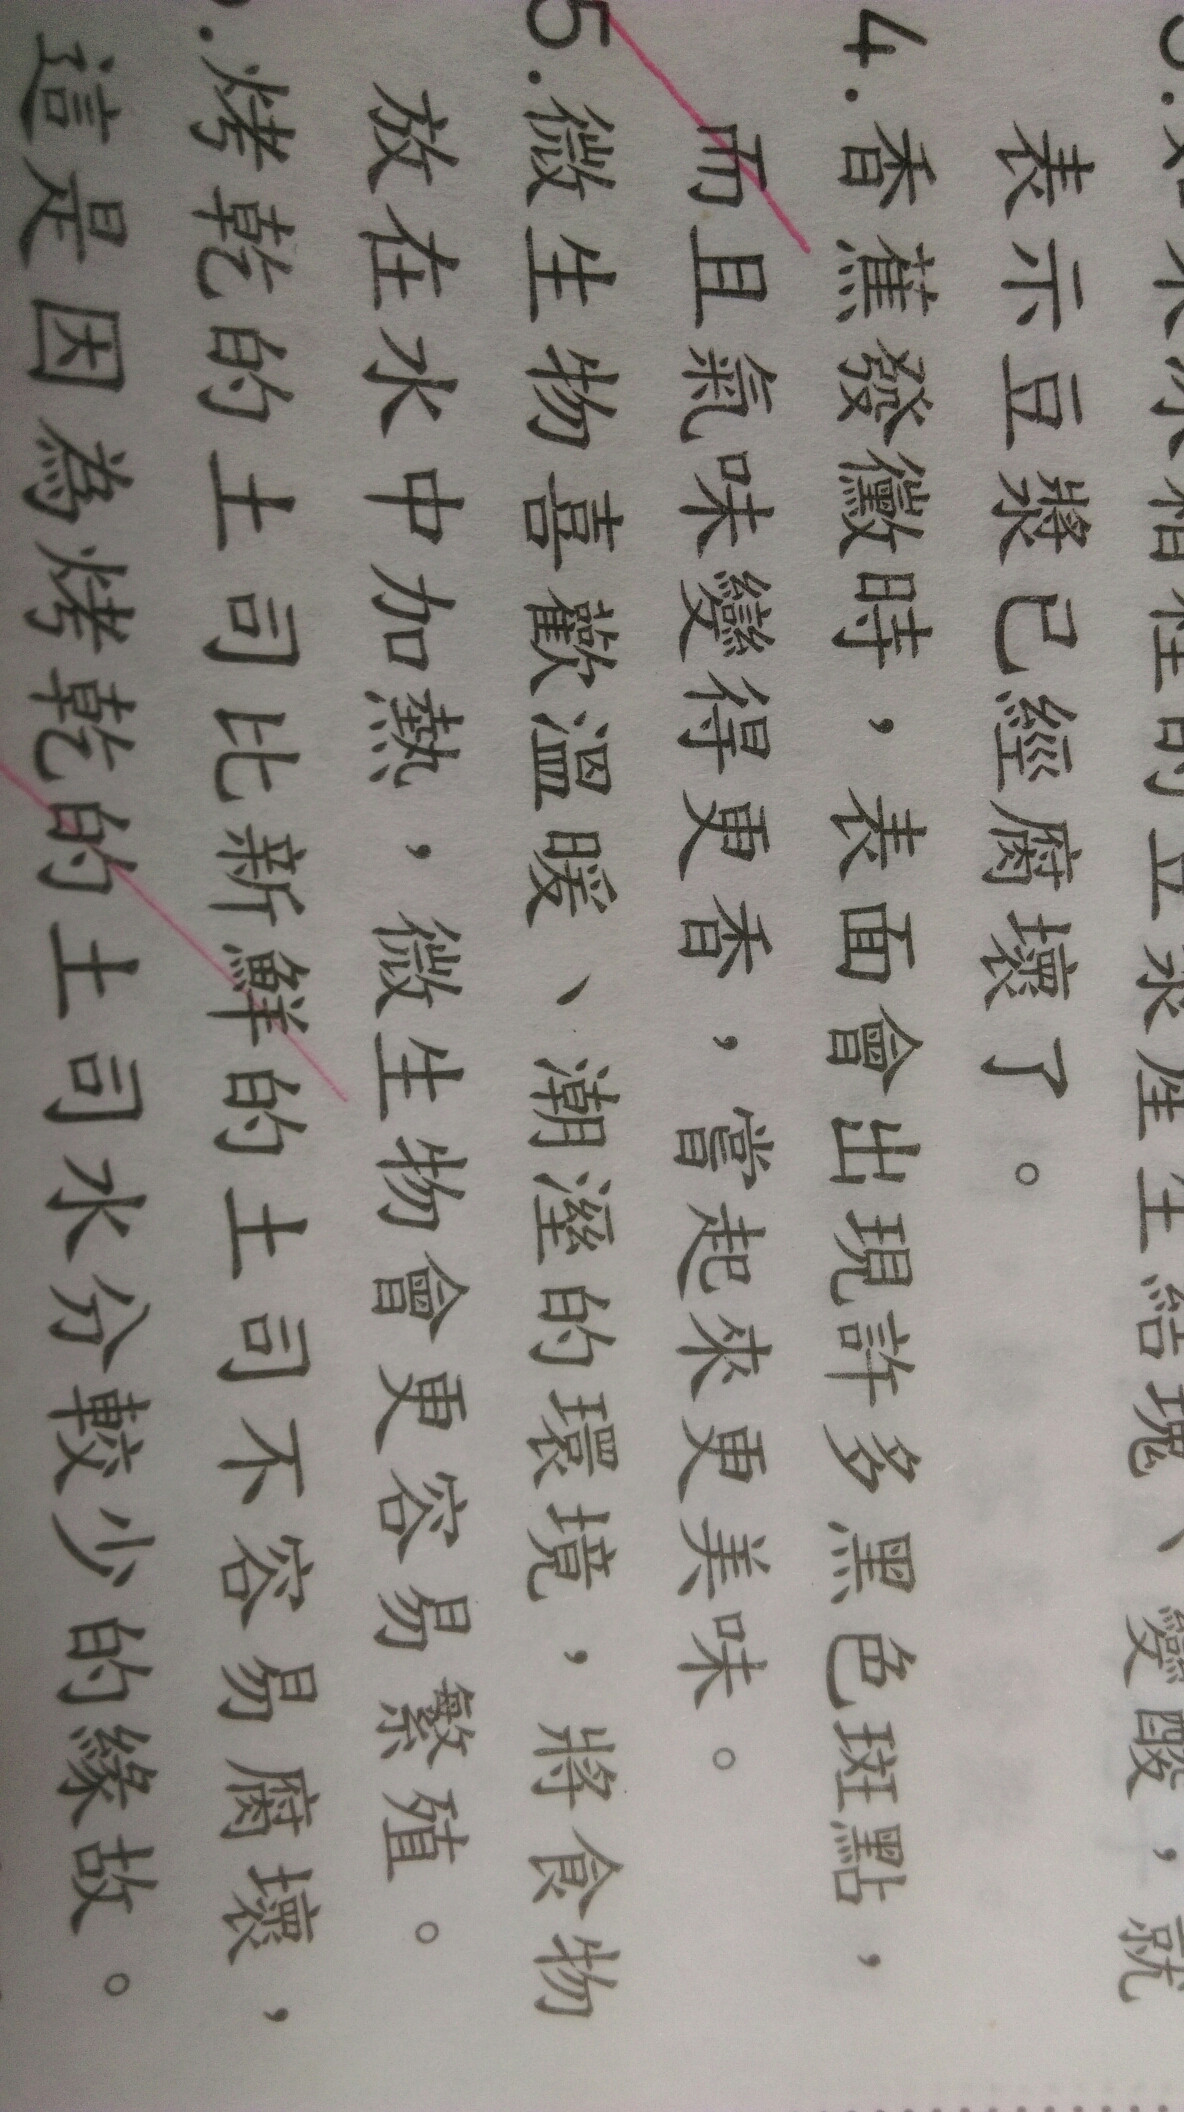 表示豆漿已經腐壞了。
4.香蕉發黴時，表面會出現許多黑色斑點，
而且氣味變得更香，嘗起來更美味。
5.微生物喜歡溫暖、潮溼的環境，將食物
放在水中加熱，微生物會更容易繁殖。
.烤乾的土司比新鮮的土司不容易腐壞，
這是因為烤乾的土司水分較少的緣故。